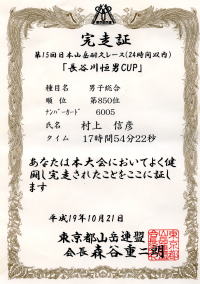 完走証
第15回日本山岳耐久レース(24時間以内)
「長谷川恒男CUP」
種目名 男子総合
順位 第850位
ナンバーカード 6005
氏名 村上 信彦
タイム 17時間54分22秒
あなたは本大会においてよく健
闘し完走されたことをここに証し
ます
平成19年10月21日
東京都山岳連盟
会長 森谷重二朗